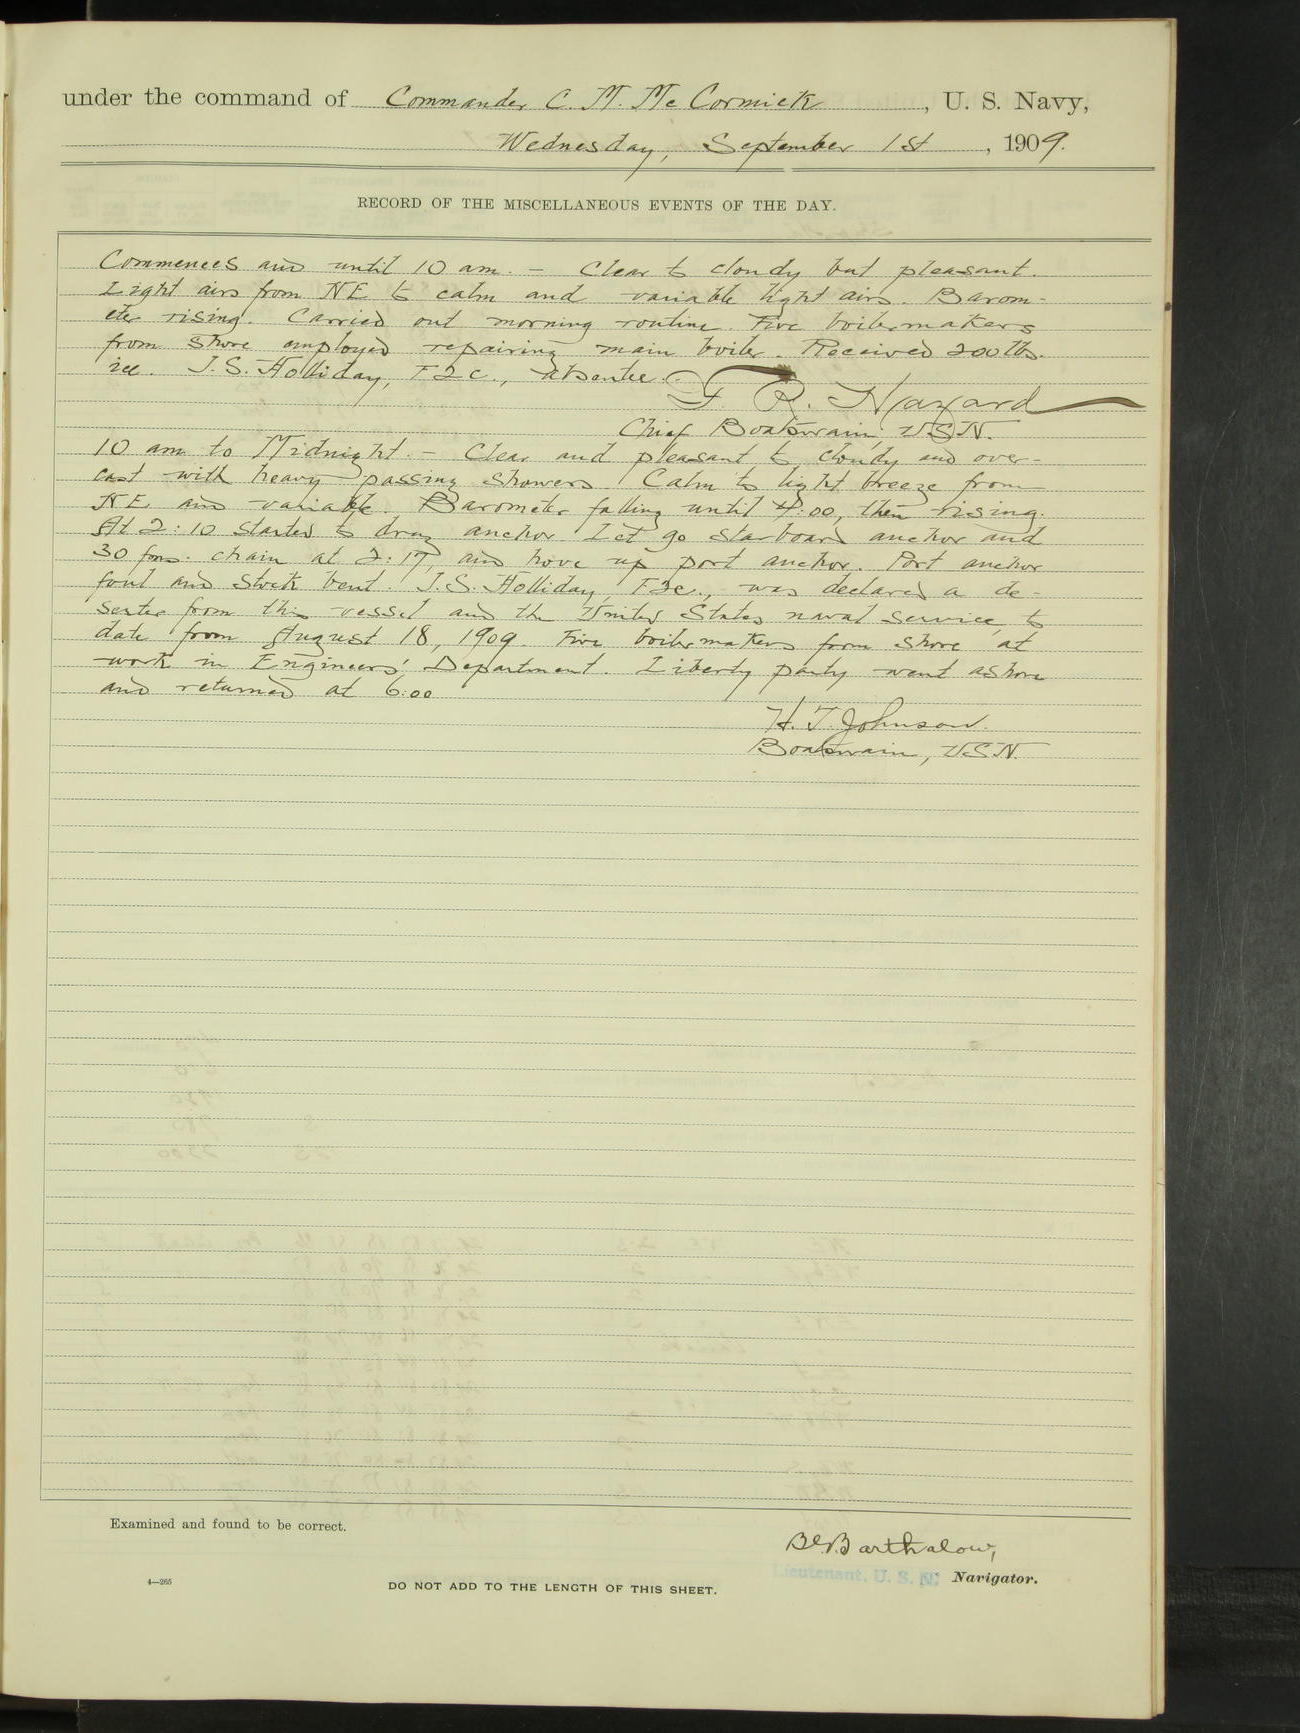 under the command of Commander C. M. McCormick, U. S. Navy,
Wednesday, September 1st, 1909.
RECORD OF THE MISCELLANEOUS EVENTS OF THE DAY.
Commences and until 10 am. – Clear to cloudy but pleasant.
Light airs from NE to calm and variable light airs. Barom-
eter rising. Carried out morning routine. Five boilermakers
from shore employed repairing main boiler. Received 200 lbs.
ice. J. S. Holliday, F2c., absentee.
F. R. Hazard
Chief Boatswain USN.
10 am to Midnight. – Clear and pleasant to cloudy and over-
cast with heavy passing showers. Calm to light breeze from
NE and variable. Barometer falling until 4:00, then rising.
At 2:10 started to drag anchor. Let go starboard anchor and
30 fms. chain at 2:17, and hove up port anchor. Port anchor
foul and stock bent. J. S. Holliday, F2c., was declared a de-
serter from this vessel and the United States naval service, to
date from August 18, 1909. Five boilermakers from shore at
work in Engineers' Department. Liberty party went ashore
and returned at 6:00
H. T. Johnson.
Boatswain, USN.
Examined and found to be correct.
Barthalow,
Lieutenant, U. S. N. Navigator.
4—265
DO NOT ADD TO THE LENGTH OF THIS SHEET.